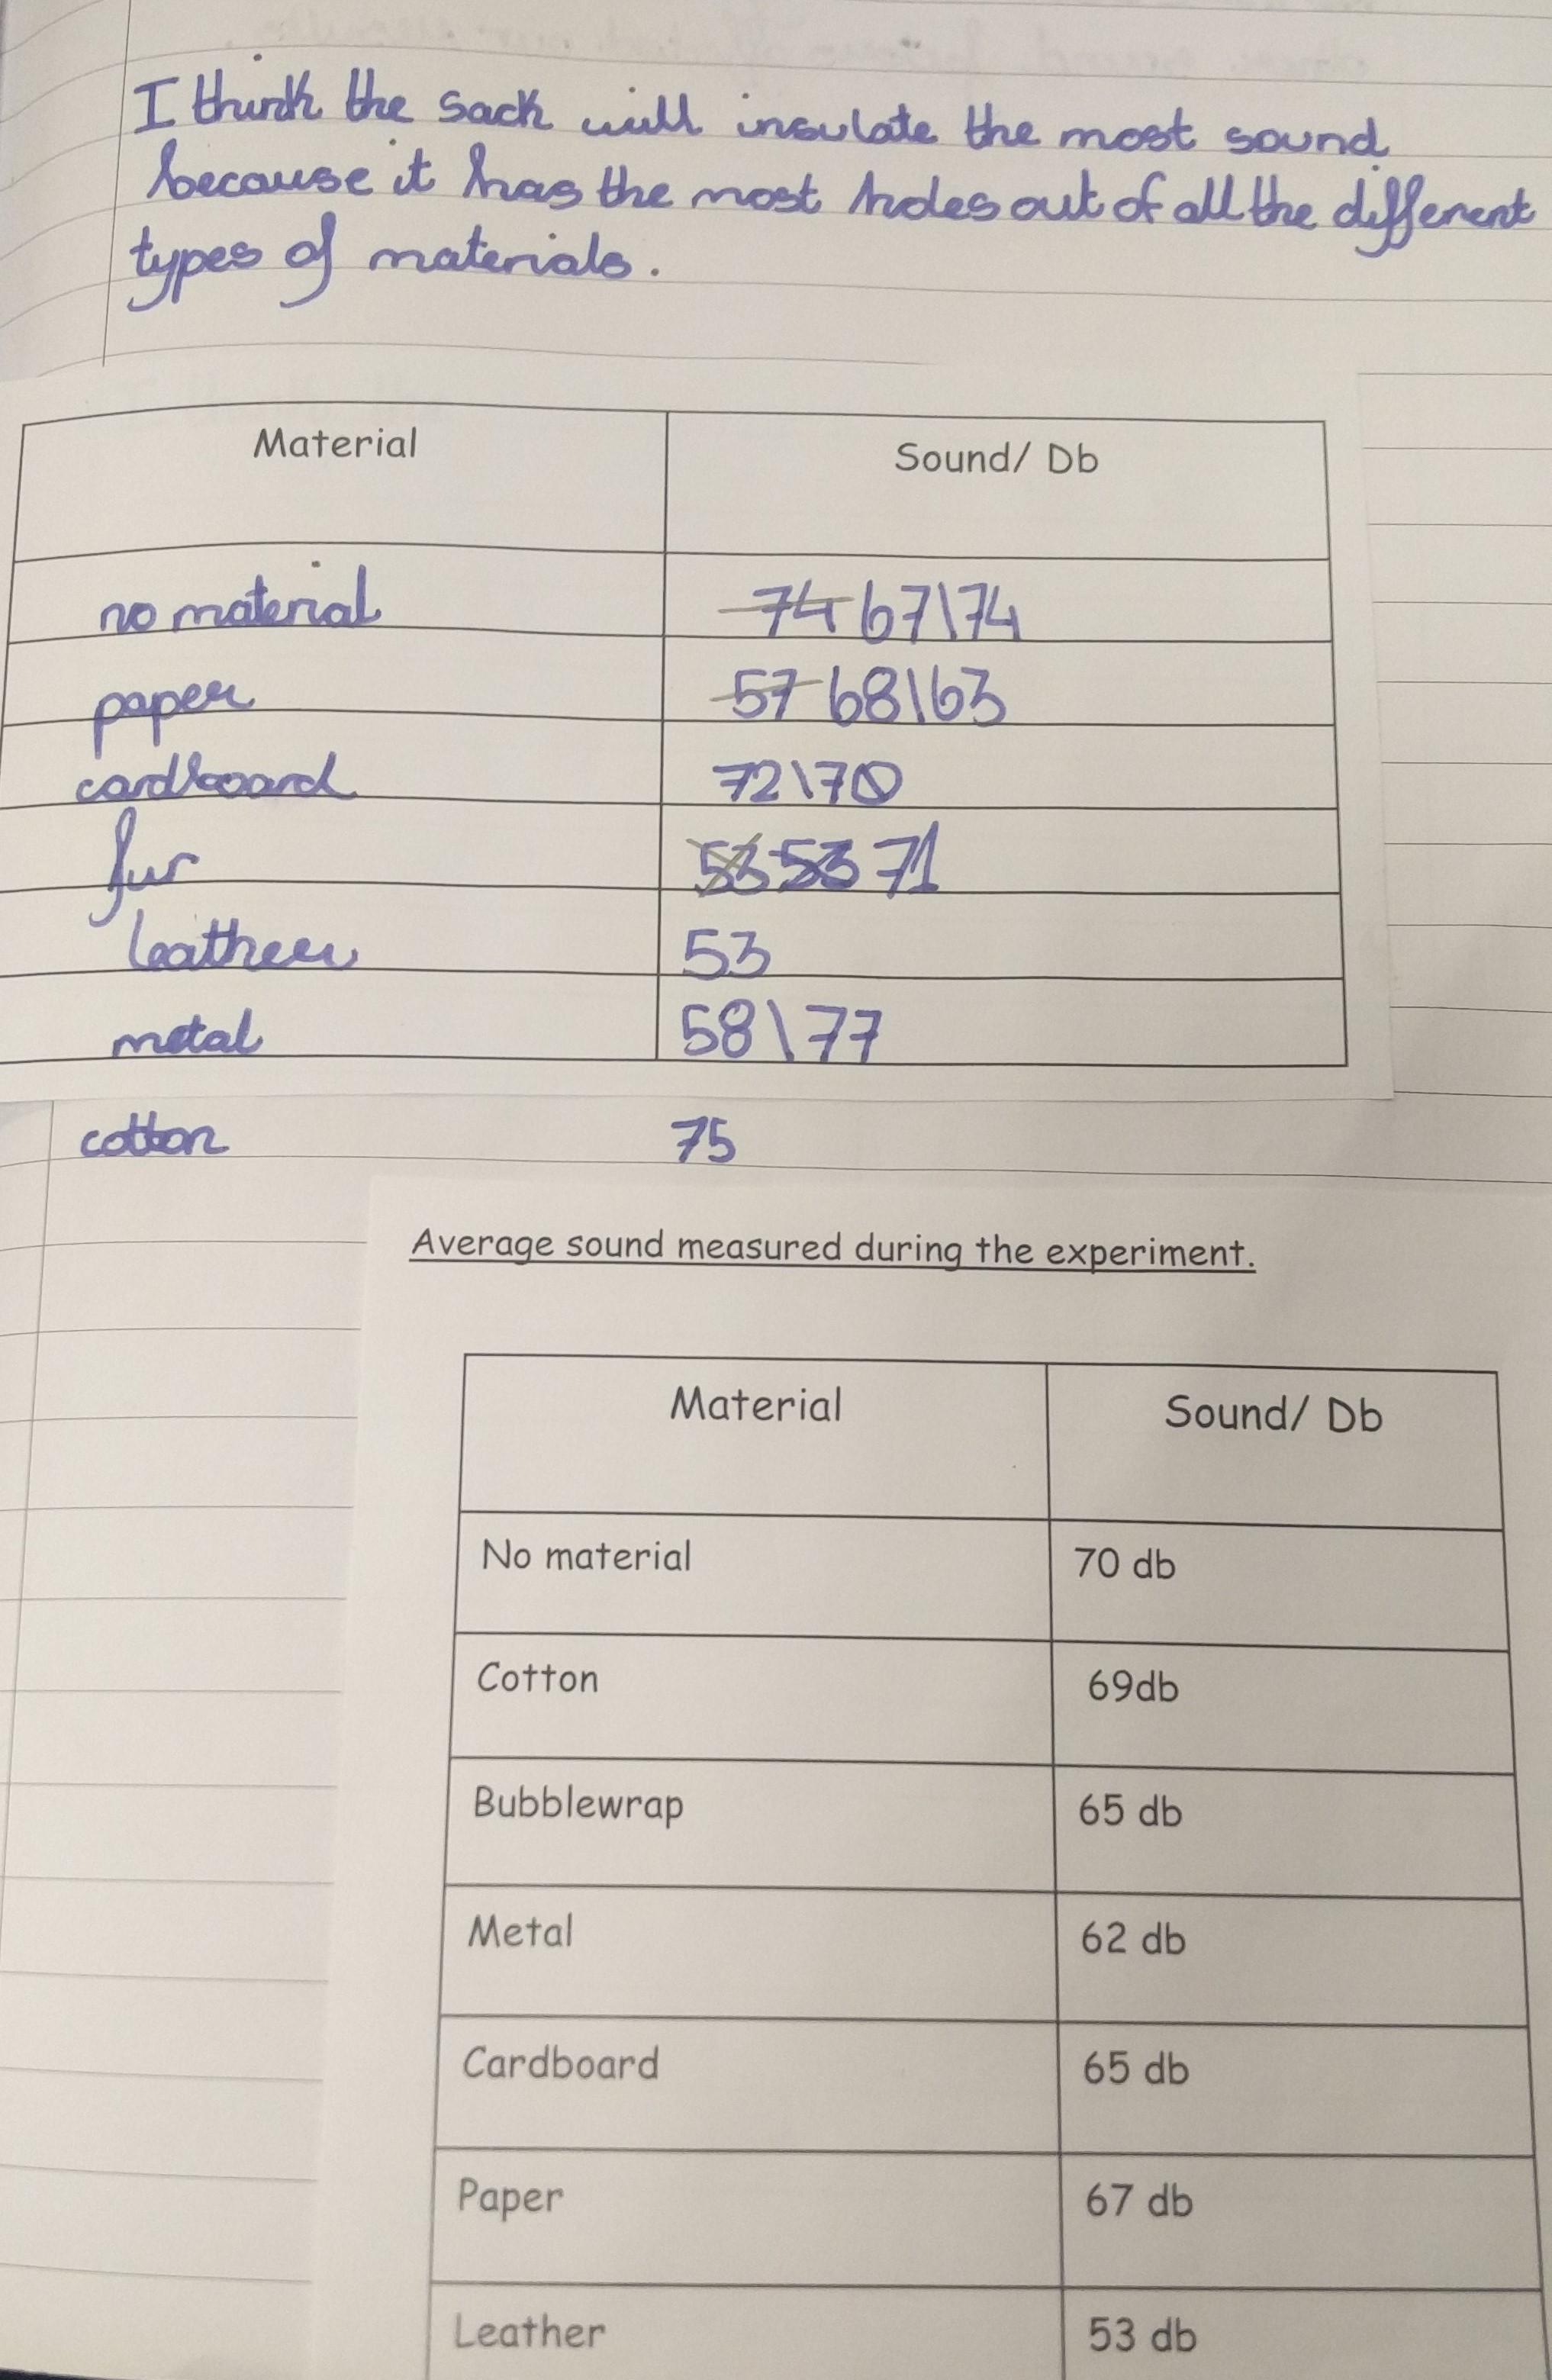 I think the sack will insulate the most sound
because it has the most holes out of all the different
types of materials.
Material Sound/ Db
no material 74 67\74
paper 57 68\63
cardboard 72\70
fur 53 53 71
leather 53
metal 58\77
cotton 75
Average sound measured during the experiment.
Material Sound/ Db
No material 70 db
Cotton 69db
Bubblewrap 65 db
Metal 62 db
Cardboard 65 db
Paper 67 db
Leather 53 db